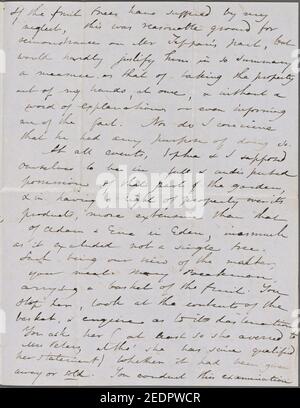 If the fruit trees have suffered by my
neglect, this was reasonable ground for
remonstrance on Mr Tappan's part, but
would hardly justify him in so summary
a measure as that of taking the property
out of my hands, at once, & without a
word of explanation, or even informing
me of the fact. Nor do I conceive
that he had any purpose of doing so.
At all events, Sophia & I supposed
ourselves to be in full & undisputed
possession of that part of the garden,
& in having a right of property over its
products, more extensive than that
of Adam & Eve in Eden, inasmuch
as it excluded not a single tree.
Such being our view of the matter,
you meet Mary Beekman
carrying a basket of the fruit. You
stop her, look at the contents of the
basket, & enquire as to its destination.
You ask her (at least so she averred to
Mrs Peters, altho' she has since qualified
her statement) whether it had been given
away or sold. You conduct this examination
alamy
Image ID: 2EDPWCR
www.alamy.com